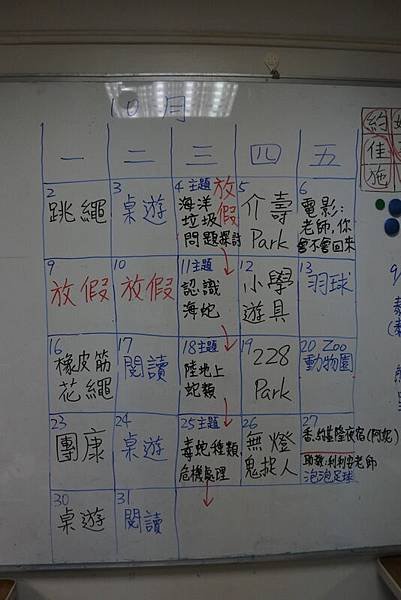 10月
一 二 三 四 五
2
跳繩
3
桌遊
4 主題
海洋
垃圾
問題探討
放
假
5
介壽
Park
6
電影:
老師,你
會不會回來
9
放假
10
放假
11 主題
認識
海蛇
12
小學
遊具
13
羽球
16
橡皮筋
花繩
17
閱讀
18 主題
陸地上
蛇類
19
228
Park
20 Zoo
動物園
23
團康
24
桌遊
25 主題
毒蛇種類
危機處理
26
無燈
鬼捉人
27
隆夜宿(阿妮)
助教:利利安老師
泡泡足球
30
桌遊
31
閱讀
約
佳
施